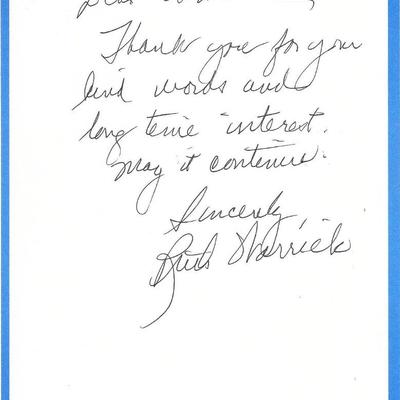 Dear
Thank you for your
kind words and
long time interest.
May it continue.
Sincerely,
Ruth Warrick